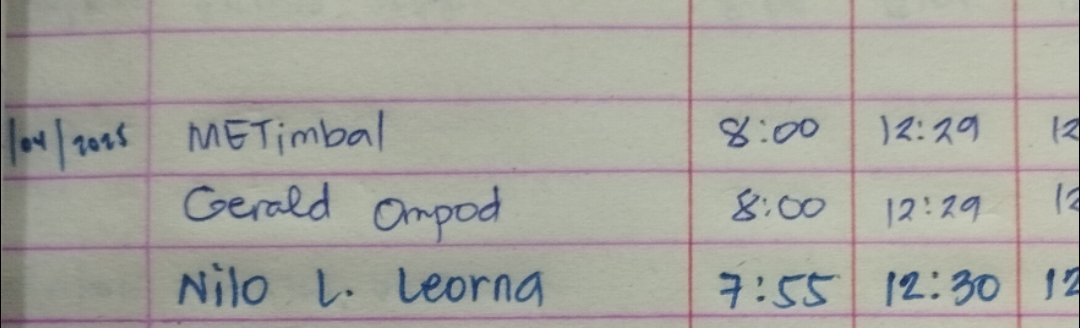 /04/2025 METimbal 8:00 12:29 12
Gerald Ompod 8:00 12:29 12
Nilo L. Leorna 7:55 12:30 12